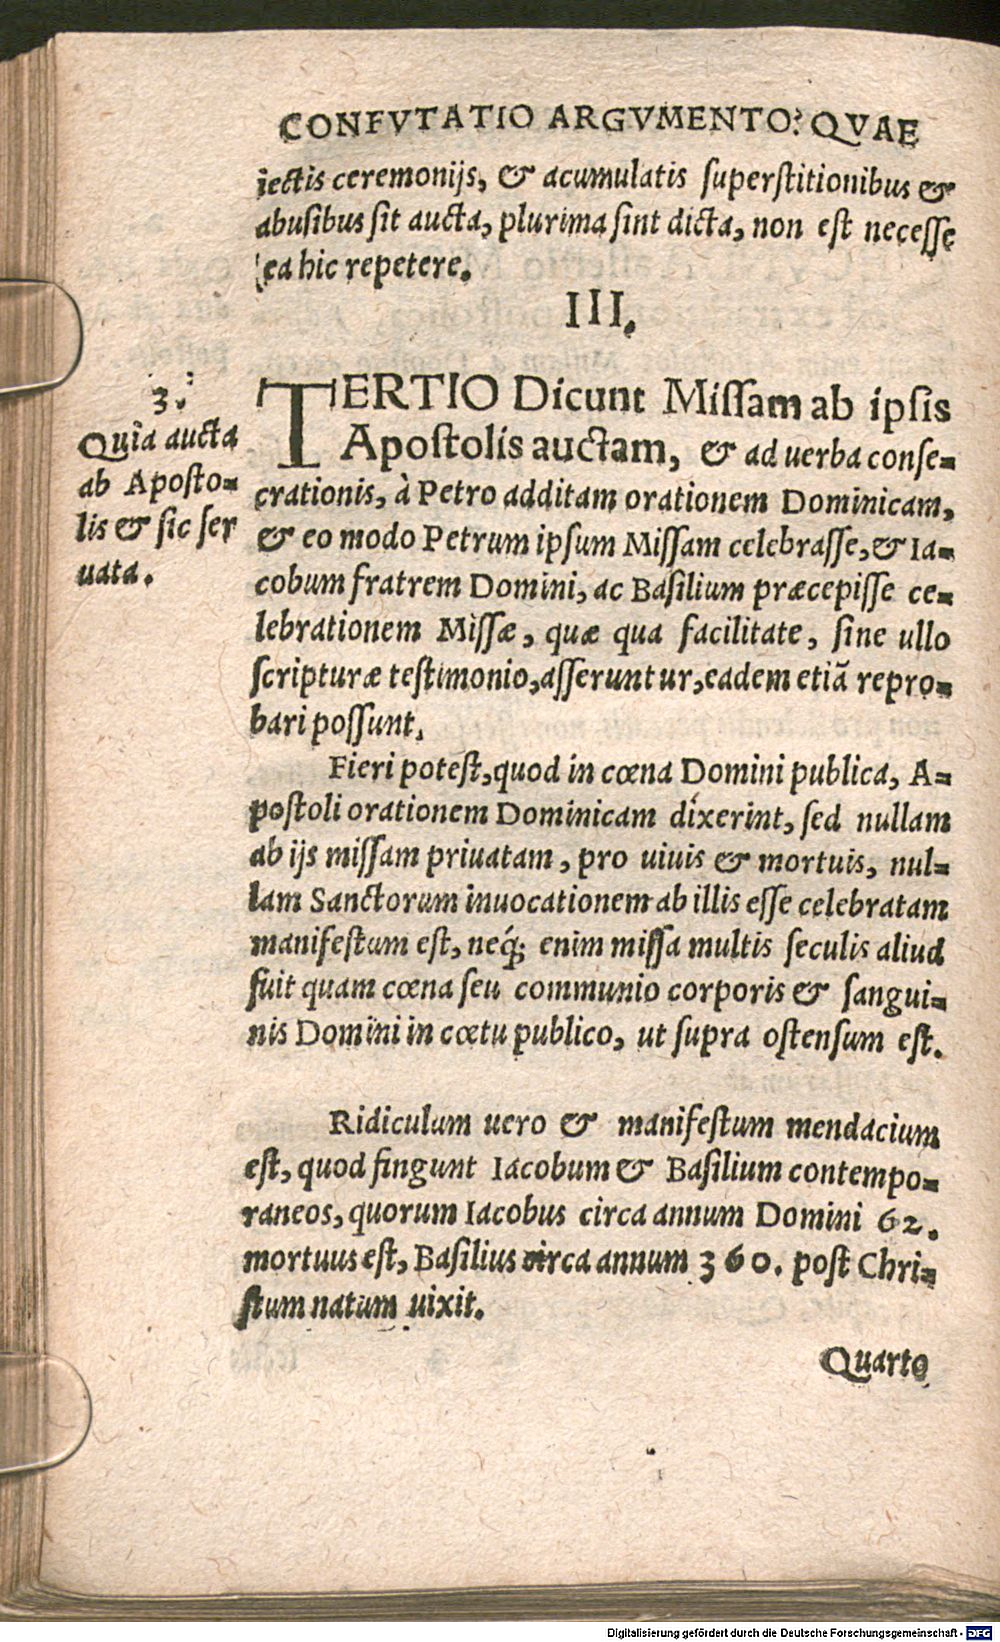 CONFVTATIO ARGVMENTO? QVAE
iectis ceremonijs, & acumulatis superstitionibus &
abusibus sit aucta, plurima sint dicta, non est necesse
ea hic repetere.
III.
3.
Quia aucta
ab Aposto-
lis & sic ser
uata.
TERTIO Dicunt Missam ab ipsis
Apostolis auctam, & ad uerba conse-
crationis, à Petro additam orationem Dominicam,
& eo modo Petrum ipsum Missam celebrasse, & Ia-
cobum fratrem Domini, ac Basilium præcepisse ce-
lebrationem Missæ, quæ qua facilitate, sine ullo
scripturæ testimonio, asseruntur, eadem etiã repro-
bari possunt.
Fieri potest, quod in cœna Domini publica, A-
postoli orationem Dominicam dixerint, sed nullam
ab ijs missam priuatam, pro uiuis & mortuis, nul-
lam Sanctorum inuocationem ab illis esse celebratam
manifestum est, neq; enim missa multis seculis aliud
fuit quam cœna seu communio corporis & sangui-
nis Domini in cœtu publico, ut supra ostensum est.
Ridiculum uero & manifestum mendacium
est, quod fingunt Iacobum & Basilium contempo-
raneos, quorum Iacobus circa annum Domini 62.
mortuus est, Basilius circa annum 360. post Chri-
stum natum uixit.
Quarto
Digitalisierung gefördert durch die Deutsche Forschungsgemeinschaft - DFG